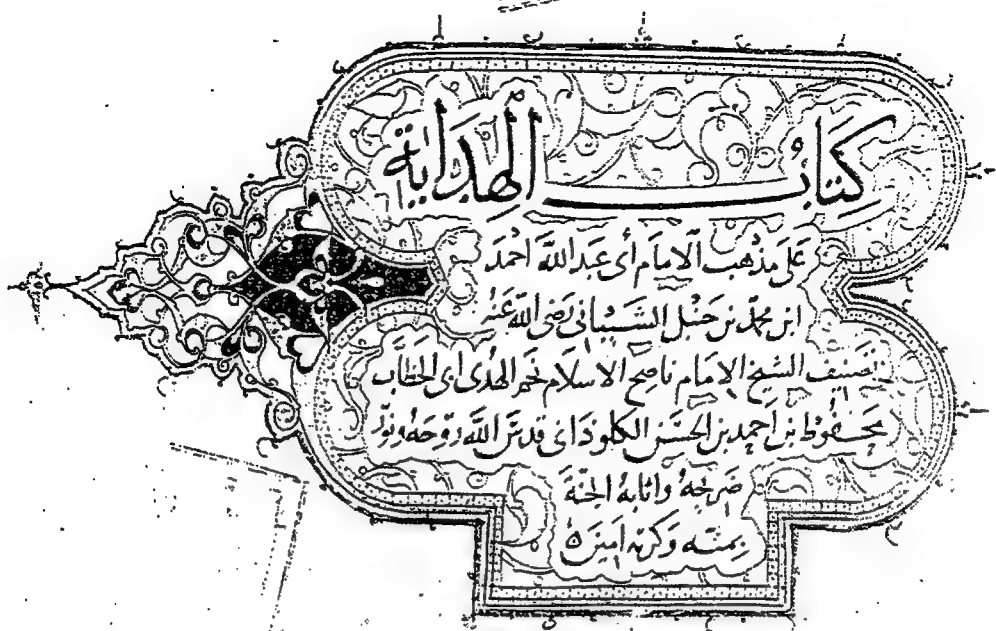 كتاب الهداية
على مذهب الامام أبى عبد الله احمد
ابن محمد بن حنبل الشيبانى رضى الله عنه
تصنيف الشيخ الامام ناصح الاسلام نجم الهدى ابى الخطاب
محفوظ بن احمد بن الحسن الكلوذانى قدس الله روحه ونور
ضريحه واثابه الجنة
بمنه وكرمه امين